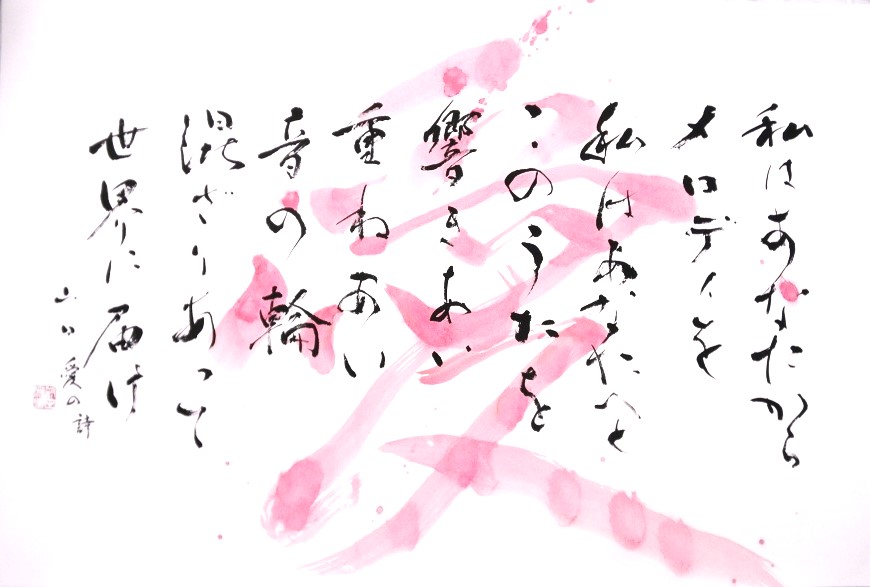 私はあなたから
メロディを
私はあなたへと
このうたを
響きあい
重ねあい
音の輪
混ざりあって
世界に届け
山口愛の詩
愛